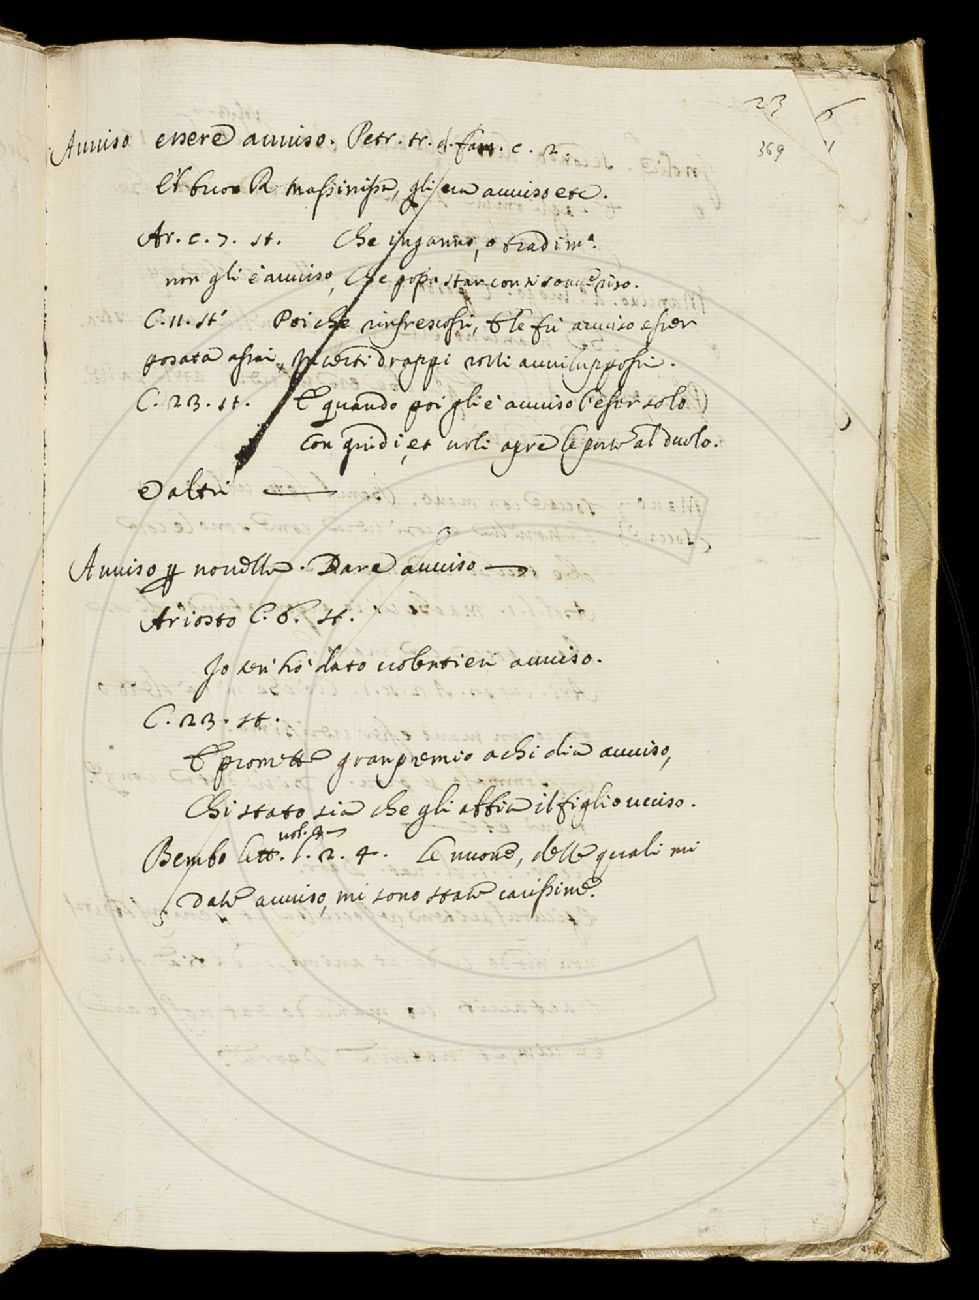 23 6
369
Auuiso essere auuiso. Petr. tr. d. fam. c. 2.
E'l buon R. Massinissa, gli era auuiso etc.
Ar. c. 7. st. Che inganno, o tradim.º
non gli è auuiso, che possa star con sì soaue riso.
C. 11. st. Poi che rinfrescossi, e le fu auuiso esser
posata assai, in certi drappi rossi auuiluppossi.
C. 23. st. E quando poi gli è auuiso d'esser solo
Con gridi, et urli apre le porte al duolo.
e altri
Auuiso per nouella. Dare auuiso
Ariosto C. 6. st.
Io ten' hò dato uolentieri auuiso.
C. 23. st.
E promette gran premio a chi dia auuiso,
Chi stato sia che gli abbia il figlio ucciso.
uol. 2
Bembo lett. l. 2. 4. Le nuoue, delle quali mi
date auuiso, mi sono state carissime.